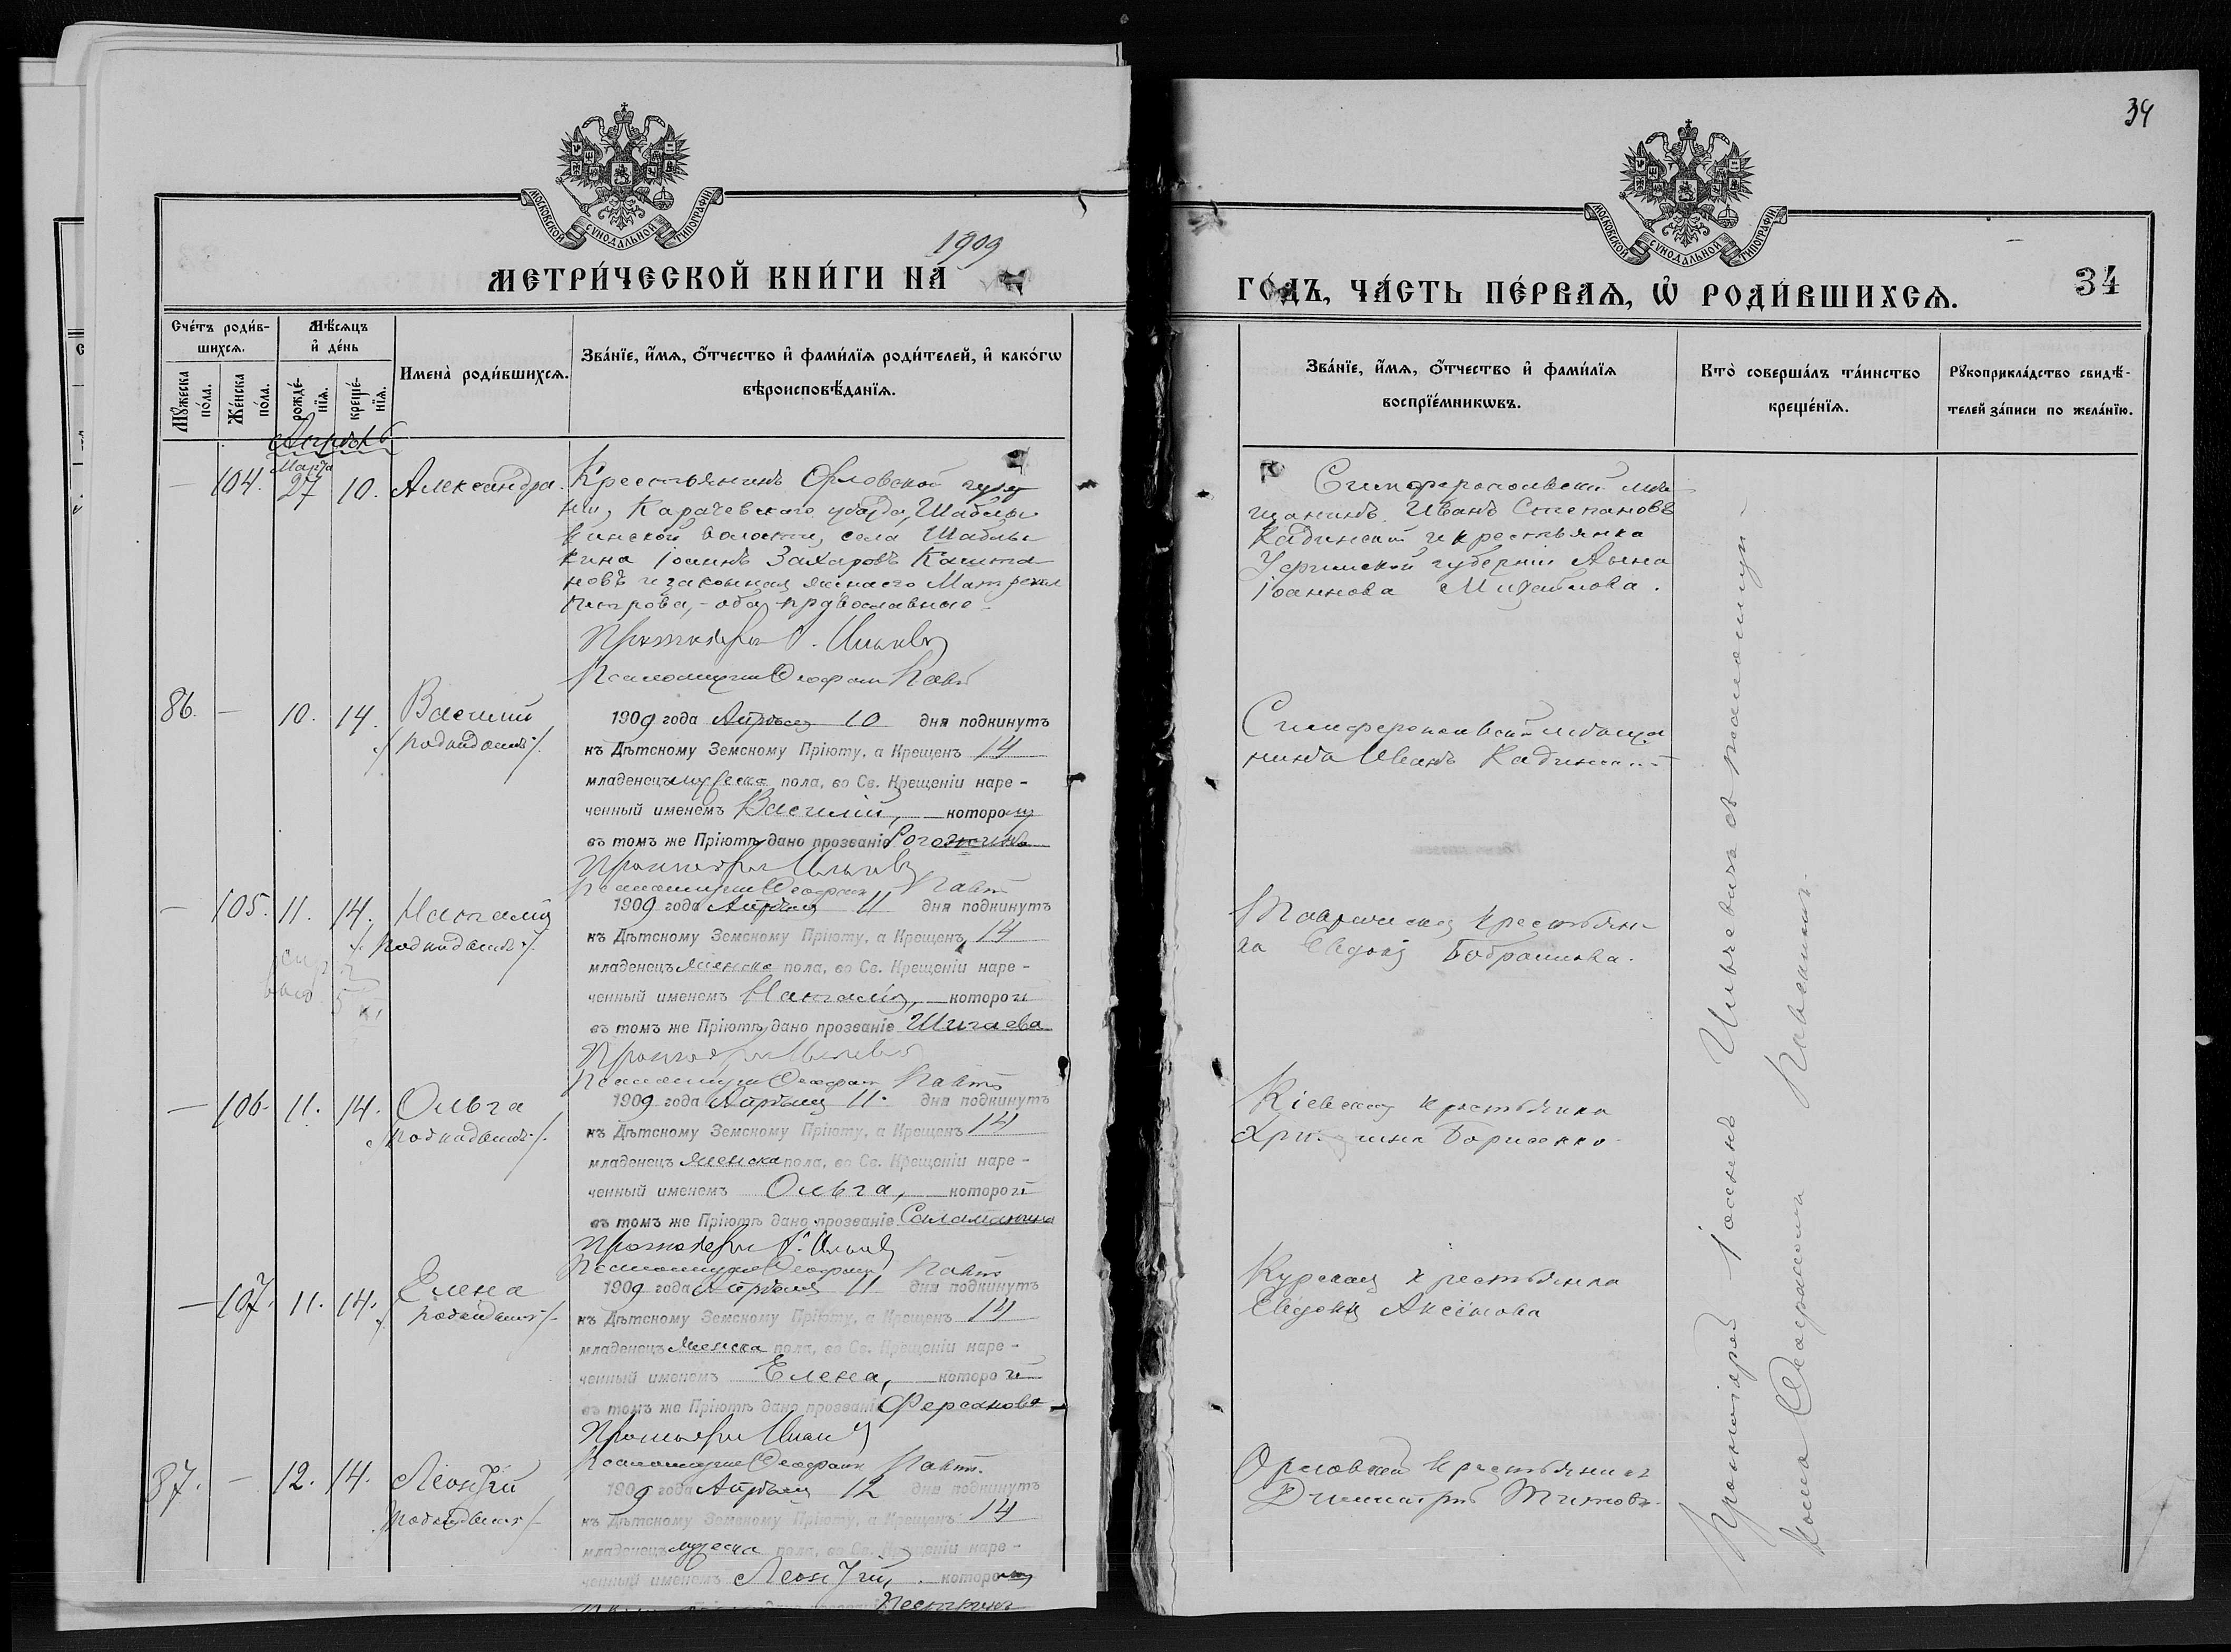 34
МОСКОВСКОЙ СѴНОДАЛЬНОЙ ТИПОГРАФІИ
МОСКОВСКОЙ СѴНОДАЛЬНОЙ ТИПОГРАФІИ
1909
МЕТРИ́ЧЕСКОЙ КНИ́ГИ НА
ГО́ДЪ, ЧА́СТЬ ПЕ́РВАѦ, Ѡ҆ РОДИ́ВШИХСѦ.
34
Сче́тъ роди́в-
шихсѧ.
Мѣ́сѧцъ
и҆ де́нь
Мꙋ́жеска
по́ла.
Же́нска
по́ла.
рожде́-
нїѧ.
креще́-
нїѧ.
Имена̀ роди́вшихсѧ.
Зва́нїе, и҆́мѧ, ѻ҆́тчество и҆ фами́лїѧ роди́телей, и҆ како́гѡ
вѣроисповѣ́данїѧ.
Зва́нїе, и҆́мѧ, ѻ҆́тчество и҆ фами́лїѧ
воспрїе́мникѡвъ.
Кто̀ соверша́лъ та́инство
креще́нїѧ.
Рꙋкоприкла́дство свидѣ́-
телей за́писи по жела́нїю.
Апрѣль
Марта
— 104. 27 10. Александра.
Крестьянинъ Орловской губер
ніи, Карачевскаго уѣзда, Шаблы
кинской волости, села Шаблы
кина Іоаннъ Захаровъ Кашта
новъ и законная жена его Матрена
Петрова, - оба православные -
Протоіерей І. Ильчевъ
Псаломщикъ Ѳеофанъ Павл
Симферопольскій мѣ
щанинъ Иванъ Степановъ
Кадинскій и крестьянка
Уфимской губерніи Анна
Іоаннова Михайлова.
86. — 10. 14. Василій
/. подкидышъ ./.
1909 года Апрѣля 10 дня подкинутъ
къ Дѣтскому Земскому Пріюту, а Крещенъ 14
младенецъ мужеска пола, во Св. Крещеніи наре-
ченный именемъ Василій, — которому
въ томъ же Пріютѣ дано прозваніе Рогожинъ
Протоіерей Ильчевъ
Псаломщикъ Ѳеофанъ Павл
Симферопольскій мѣща
нинъ Иванъ Кадинскій
— 105. 11. 14. Наталія
/. подкидышъ ./.
1909 года Апрѣля 11 дня подкинутъ
къ Дѣтскому Земскому Пріюту, а Крещенъ 14
младенецъ женска пола, во Св. Крещеніи наре-
ченный именемъ Наталія, — которой
въ томъ же Пріютѣ дано прозваніе Шигаева
Протоіерей Ильчевъ
Псаломщикъ Ѳеофанъ Павл
крестьян
ка Евдокія
— 106. 11. 14. Ольга
/. подкидышъ ./.
1909 года Апрѣля 11. дня подкинутъ
къ Дѣтскому Земскому Пріюту, а Крещенъ 14
младенецъ женска пола, во Св. Крещеніи наре-
ченный именемъ Ольга, — которой
въ томъ же Пріютѣ дано прозваніе Саламатина
Протоіерей І. Ильчевъ
Псаломщикъ Ѳеофанъ Павл
Кіевская крестьянка
Борисенко
— 107. 11. 14. Елена
/. подкидышъ ./.
1909 года Апрѣля 11 дня подкинутъ
къ Дѣтскому Земскому Пріюту, а Крещенъ 14
младенецъ женска пола, во Св. Крещеніи наре-
ченный именемъ Елена, — которой
въ томъ же Пріютѣ дано прозваніе Ферсанова
Протоіерей Ильчевъ
Псаломщикъ Ѳеофанъ Павл.
Курская крестьянка
Евдокія Аксёнова
87. — 12. 14. Леонтій
/. подкидышъ ./.
1909 года Апрѣля 12 дня подкинутъ
къ Дѣтскому Земскому Пріюту, а Крещенъ 14
младенецъ мужеска пола, во Св. Крещеніи наре-
ченный именемъ Леонтій, — которому
Орловскій крестьянинъ
Димитрій Титовъ.
Протоіерей Іоаннъ Ильчевъ съ псаломщи-
комъ Ѳеофаномъ